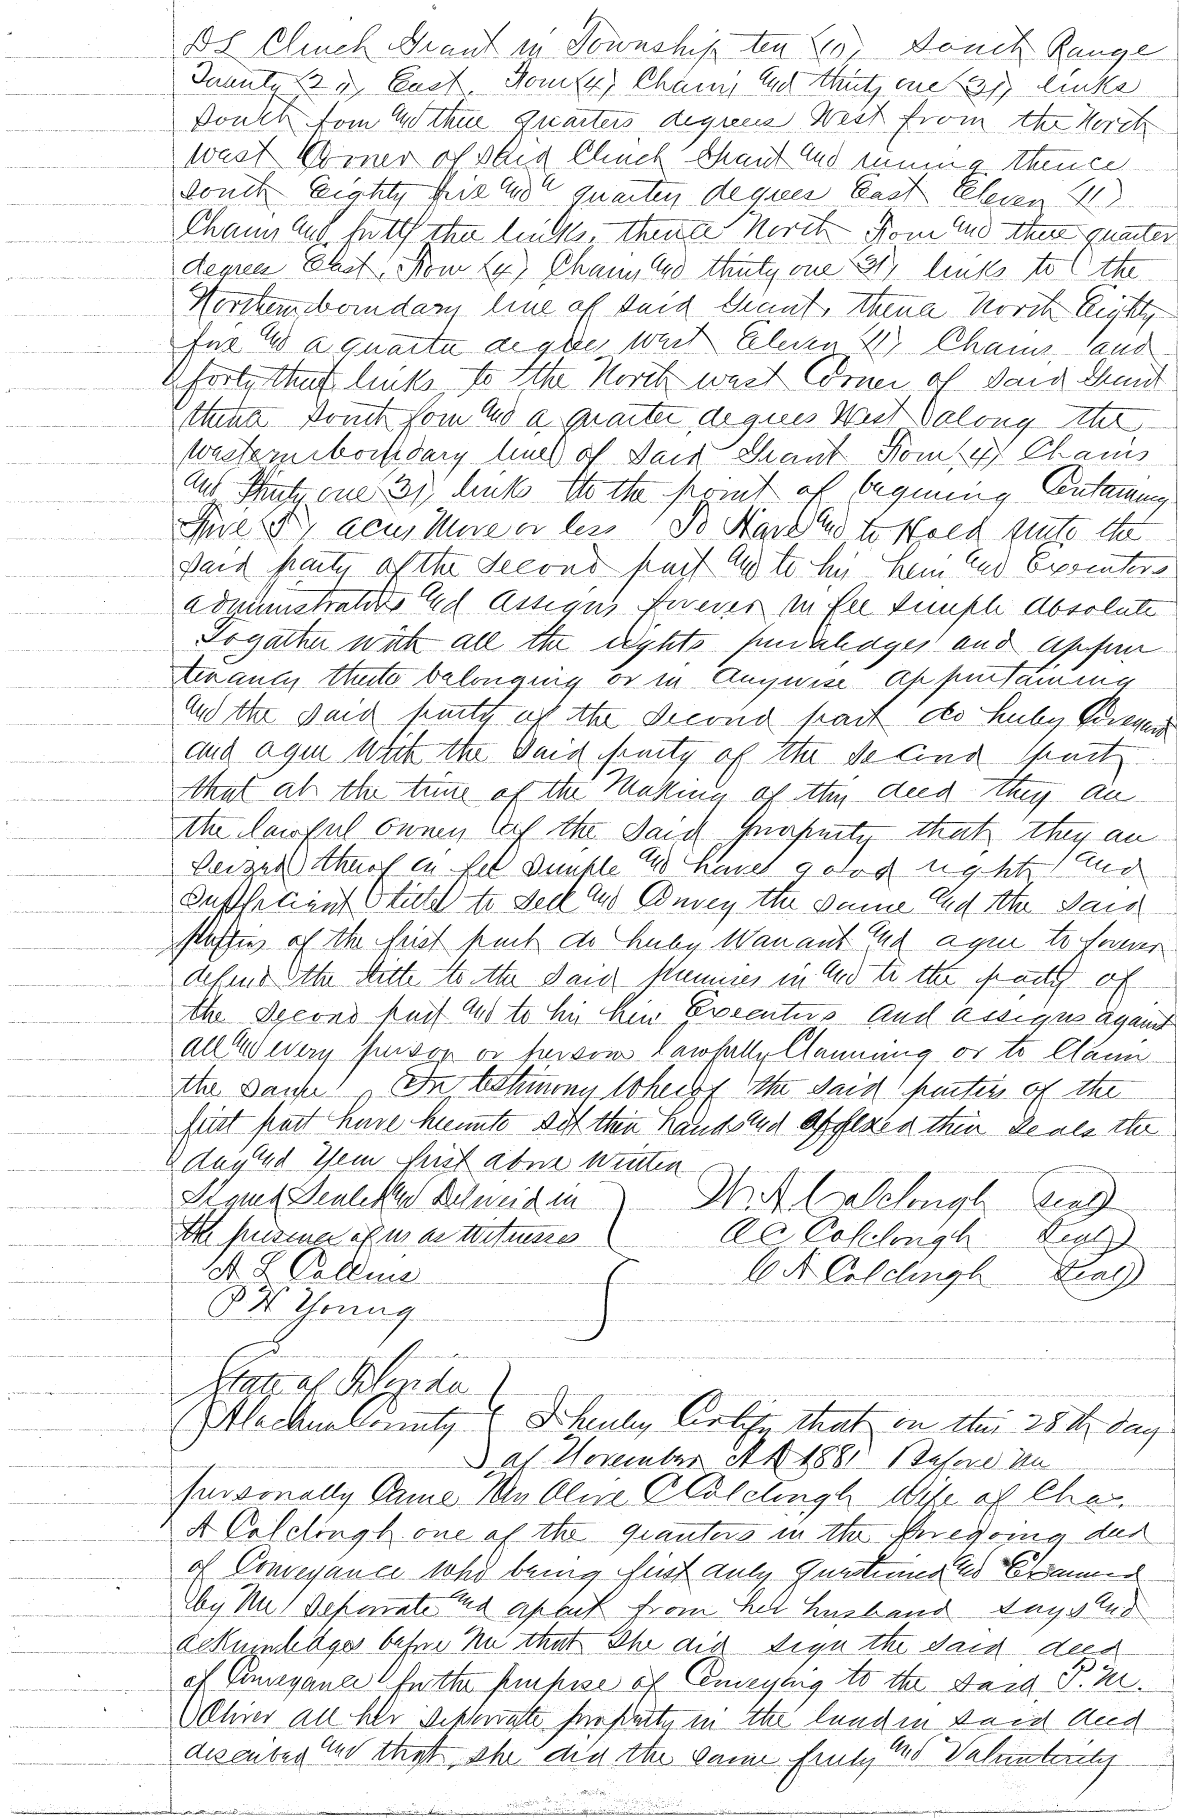 DL Clinch Grant in Township ten (10) South Range
Twenty (20) East. Four (4) Chains and thirty one (31) links
South four and three quarters degrees West from the North
west Corner of said Clinch Grant and runing thence
South Eighty five and a quarter degrees East Eleven (11)
Chains and forty three links, thence North Four and three quarter
degrees East, Four (4) Chains and thirty one (31) links to the
Northern boundary line of said Grant, thence North Eighty
five and a quarter degrees West Eleven (11) Chains and
forty three links to the North west Corner of said Grant
thence South four and a quarter degrees West along the
western boundary line of Said Grant Four (4) Chains
and Thirty one (31) links to the point of begining Containing
Five (5) acres More or less To Have and to Hold unto the
said party of the Second part and to his heirs and Executors
administrators and Assigns forever in fee simple absolute
Togather with all the rights privaledges and appur
tenances thereto belonging or in Anywise appurtaining
and the said party of the Second part do hereby Covenant
and agree with the Said party of the Second part
that at the time of the Making of this deed they are
the lawful owners of the Said property that they are
Seized thereof in fee simple and have good right and
Sufficient title to Sell and Convey the same and the Said
Parties of the first part do hereby Warrant and agree to forever
defend the title to the Said premises in and to the party of
the Second part and to his heirs Executors and assigns against
all and every person or persons lawfully Claiming or to Claim
the same. In testimony Whereof the Said parties of the
first part have hereunto set their hands and affixed their Seals the
day and Year first above Written
Signed Sealed and Delivered in
the presence of us as Witnesses
A L Collins
P H Young
W. A Colclough Seal
A C Colclough Seal
C A Colclough Seal
State of Florida
Alachua County I hereby Certify that on this 28th day
of November AD 1881 Before me
personally Came Mrs Olive C Colclough Wife of Chas.
A Colclough one of the grantors in the foregoing deed
of Conveyance who being first duly questioned and Examined
by Me Seperate and apart from her husband says and
acknowledges before Me that She did sign the said deed
of Conveyance for the purpose of Conveying to the said P. M.
Oliver all her Seperate property in the land in said deed
described and that she did the same freely and Voluntarily